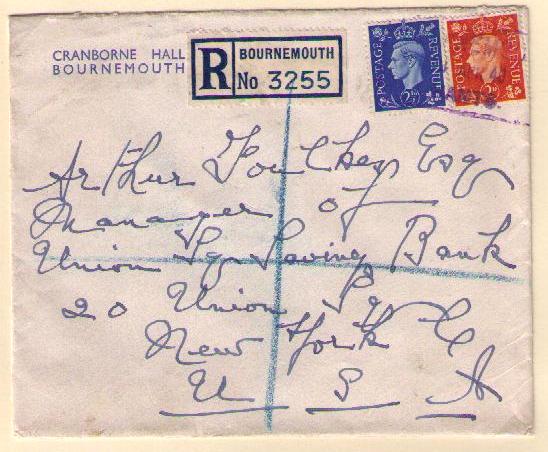 CRANBORNE HALL
BOURNEMOUTH
R
BOURNEMOUTH
No 3255
POSTAGE REVENUE
2½D
POSTAGE REVENUE
2D
Arthur Esq
Manager of
Union Sq Saving Bank
20 Union Sq
New York C
U S A